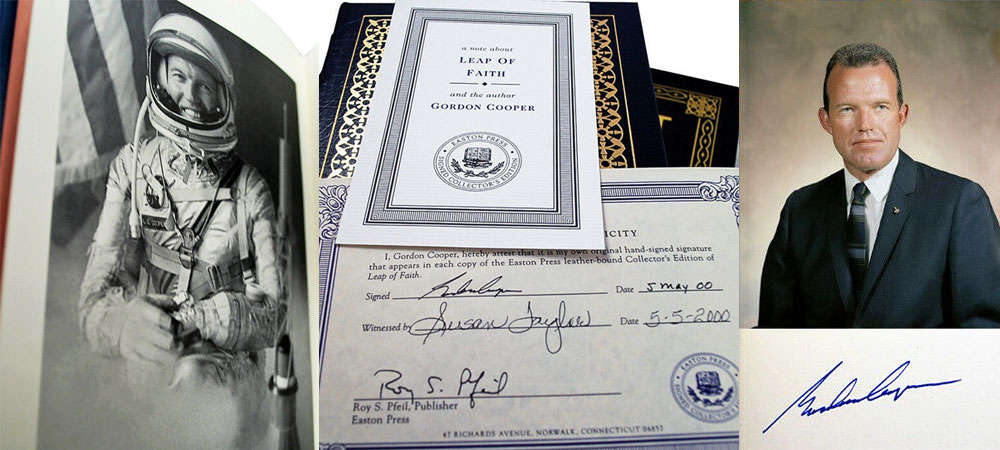 a note about
LEAP OF
FAITH
and the author
GORDON COOPER
EASTON PRESS
SIGNED COLLECTOR'S EDITION
CITY
I, Gordon Cooper, hereby attest that it is my own original hand-signed signature
that appears in each copy of the Easton Press leather-bound Collector's Edition of
Leap of Faith.
Signed Gordon Cooper Date 5 May 00
Witnessed by Susan Taylor Date 5-5-2000
Roy S. Pfeil
Roy S. Pfeil, Publisher
Easton Press
EASTON PRESS
47 RICHARDS AVENUE, NORWALK, CONNECTICUT 06857
Gordon Cooper